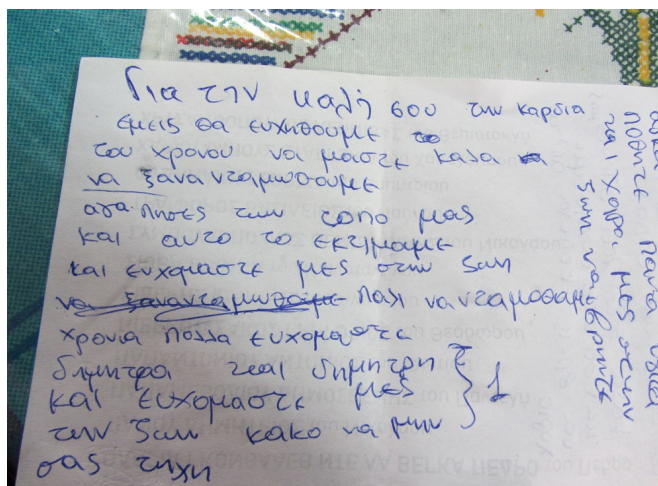 Για την καλή σου την καρδια
εμεις θα ευχηθουμε το
του χρονου να μαστε καλα
να ξανανταμωθουμε
αγαπησες τον τοπο μας
και αυτο το εκτιμαμε
και ευχομαστε μες στην ζωη
να ξανανταμωθουμε παλι να νταμοθαμε
χρονια πολλα ευχομαστε
δημητρα και δημητρη
και ευχομαστε μες 1
την ζωη κακο να μην
σας τηχη
ποθητε παντα υγεια
και χαρα μες στην
ζωη να βρητε